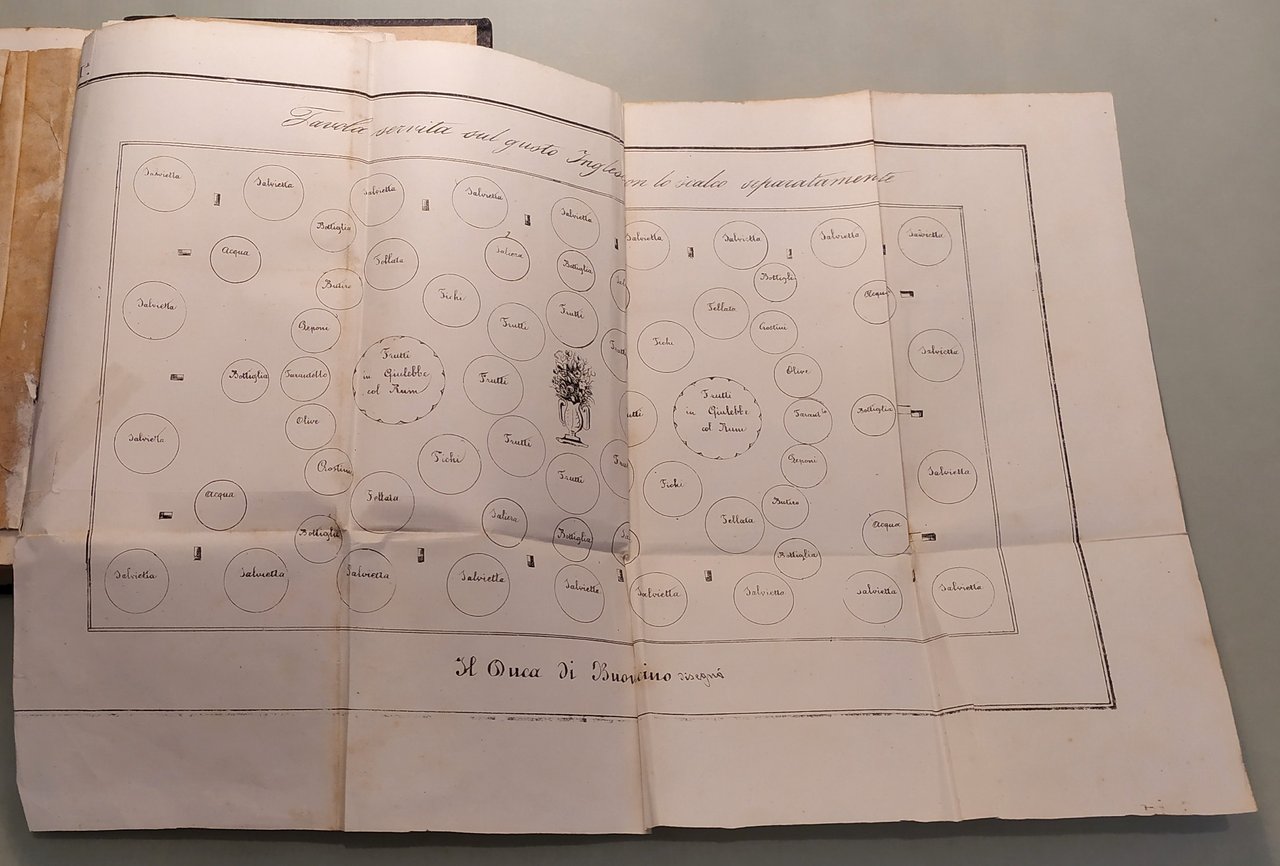 Tavola servita sul gusto Inglese con lo scalco separatamente
Salvietta
Salvietta
Salvietta
Salvietta
Salvietta
Salvietta
Salvietta
Salvietta
Salvietta
Bottiglia
Acqua
Fettata
Saliera
Bottiglia
Bottiglia
Butiro
Fichi
Fettata
Acqua
Salvietta
Peponi
Frutti
Frutti
Fichi
Crostini
Salvietta
Bottiglia
Frutti
in Giulebbe
col Rum
Frutti
Frutti
in Giulebbe
col Rum
Olive
Bottiglia
Salvietta
Olive
Fichi
Frutti
Frutti
Fichi
Peponi
Salvietta
Crostini
Acqua
Fettata
Saliera
Bottiglia
Fettata
Butiro
Acqua
Bottiglia
Bottiglia
Salvietta
Salvietta
Salvietta
Salvietta
Salvietta
Salvietta
Salvietta
Salvietta
Salvietta
Il Duca di Buonvino disegnò